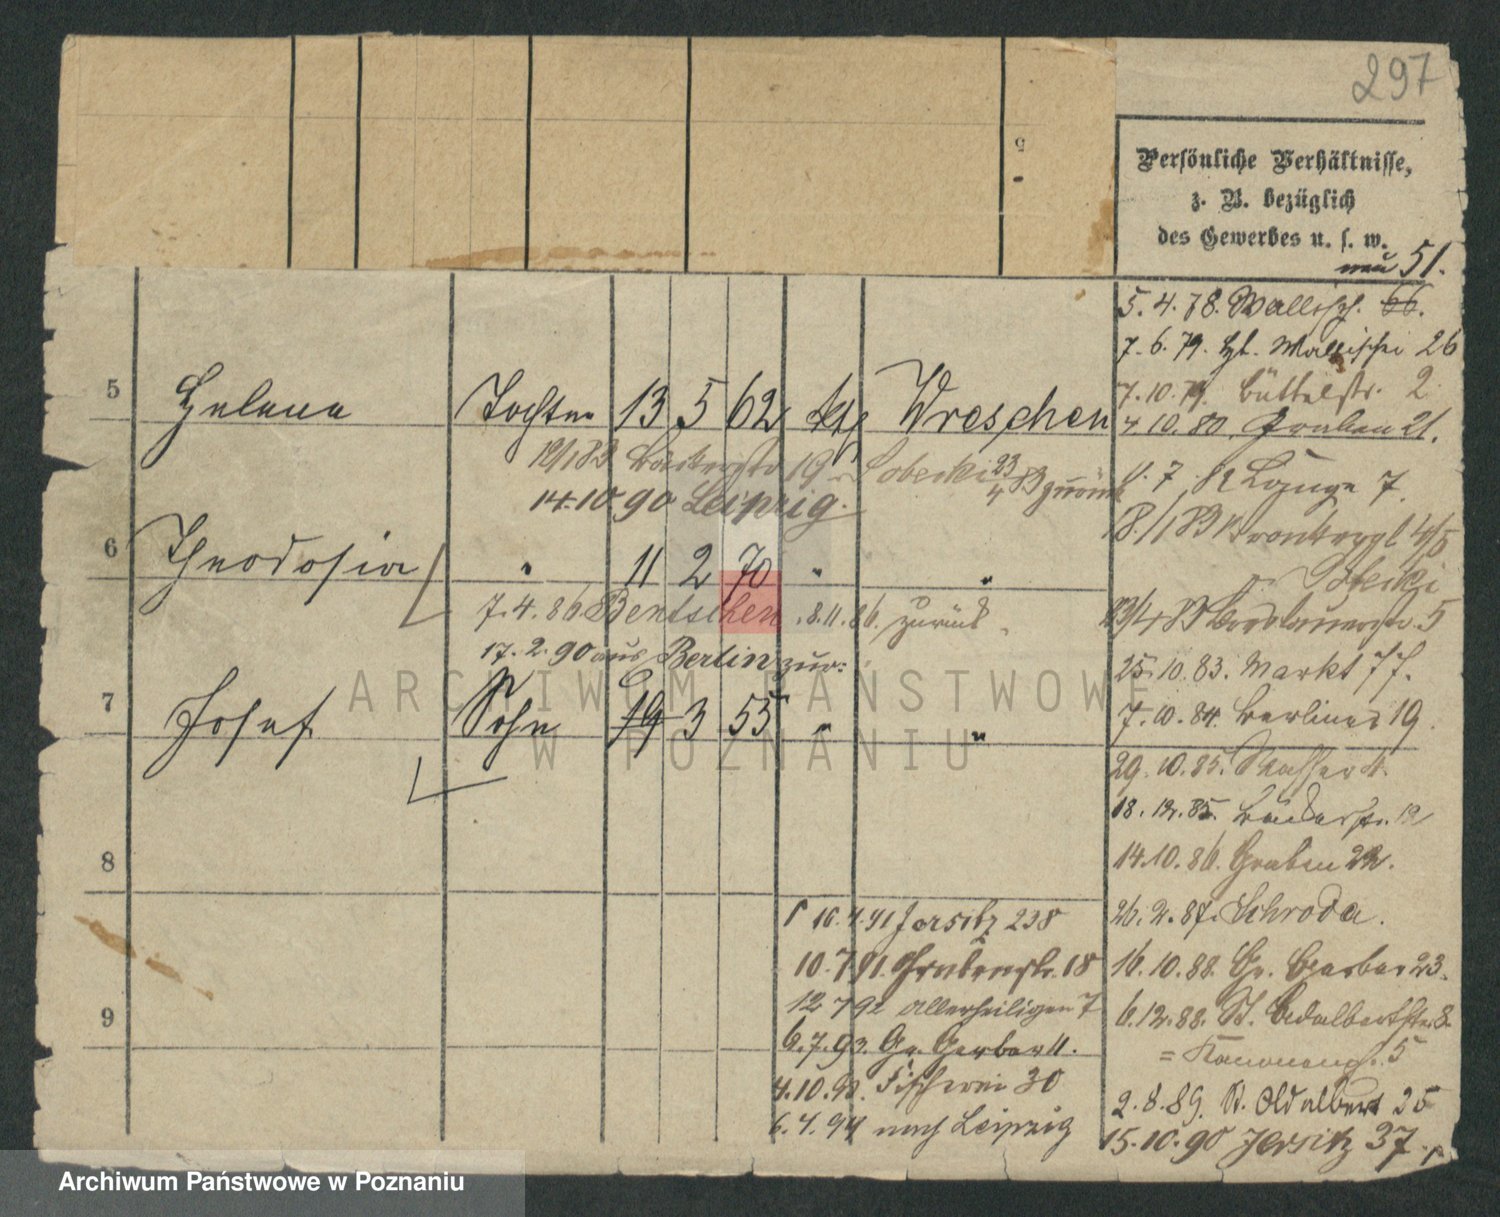 297
Persönliche Verhältnisse,
z. B. bezüglich
des Gewerbes u. s. w.
neu 51.
5 Helena Tochter 13 5 62 kth Wreschen
14.10.90 Leipzig.
6 Theodosia " 11 2 70 " "
7.4.86 Bentschen, 8.11.86. zurück
17.2.90 aus Berlin zur:
7 Josef Sohn 19 3 55 " "
8
9
5.4.78. Wallisch. 66.
7.6.79. Wallischei 26
7.10.79. Büttelstr. 2
4.10.80. Graben 21.
7 Lange 7.
25.10.83. Markt 77.
7.10.84. Berliner 19.
29.10.85.
18.12.85. 12
14.10.86. Graben 22.
26.2.87. Schroda.
16.10.88. Gr. Gerber 23.
6.12.88. St. Adalbertstr. 8.
= 5
2.8.89. St. Adalbert 25
15.10.90 Jersitz 37.
16.4.91 Jersitz 238
10.7 91. Grabenstr. 18
12 7 92 Allerheiligen 7
6.7.93. Gr. Gerber 11.
4.10.93. Fischerei 30
6.4.94 nach Leipzig
ARCHIWUM PAŃSTWOWE
W POZNANIU
Archiwum Państwowe w Poznaniu